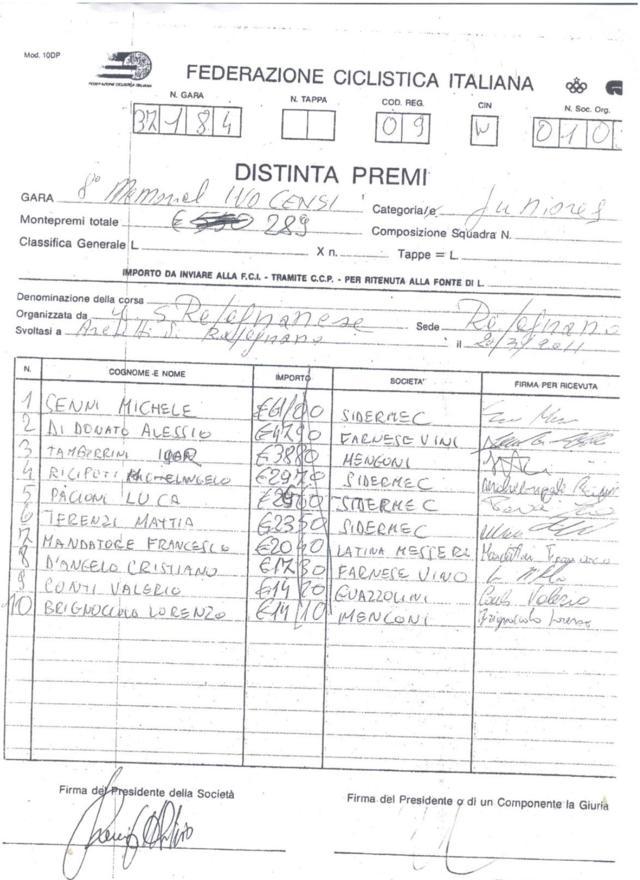 Mod. 10DP
FEDERAZIONE CICLISTICA ITALIANA
FEDERAZIONE CICLISTICA ITALIANA
N. GARA N. TAPPA COD. REG. CIN N. Soc. Org.
37184 09 W 010
DISTINTA PREMI
GARA 8° Memorial IVO CENSI Categoria/e Juniores
Montepremi totale € 289 Composizione Squadra N.
Classifica Generale L. X n. Tappe = L.
IMPORTO DA INVIARE ALLA F.C.I. - TRAMITE C.C.P. - PER RITENUTA ALLA FONTE DI L.
Denominazione della corsa
Organizzata da Sede
Svoltasi a il
N. COGNOME E NOME IMPORTO SOCIETA' FIRMA PER RICEVUTA
1 SENNI MICHELE €61/00 SIDERMEC
2 DI DONATO ALESSIO €4790 FARNESE VINI
3 TAMBURRINI IGOR €3880 MENGONI
4 RICIPUTI MICHELANGELO €2970 SIDERMEC
5 PACIONI LUCA SIDERMEC
6 TERENZI MATTIA €2350 SIDERMEC
7 MANDATORE FRANCESCO €2040 LATINA MESSERE
8 D'ANGELO CRISTIANO €1730 FARNESE VINO
9 CONTI VALERIO €1420 GUAZZOLINI Conti Valerio
10 BRIGNOCCOLO LORENZO €1410 MENGONI
Firma del Presidente della Società Firma del Presidente o di un Componente la Giuria